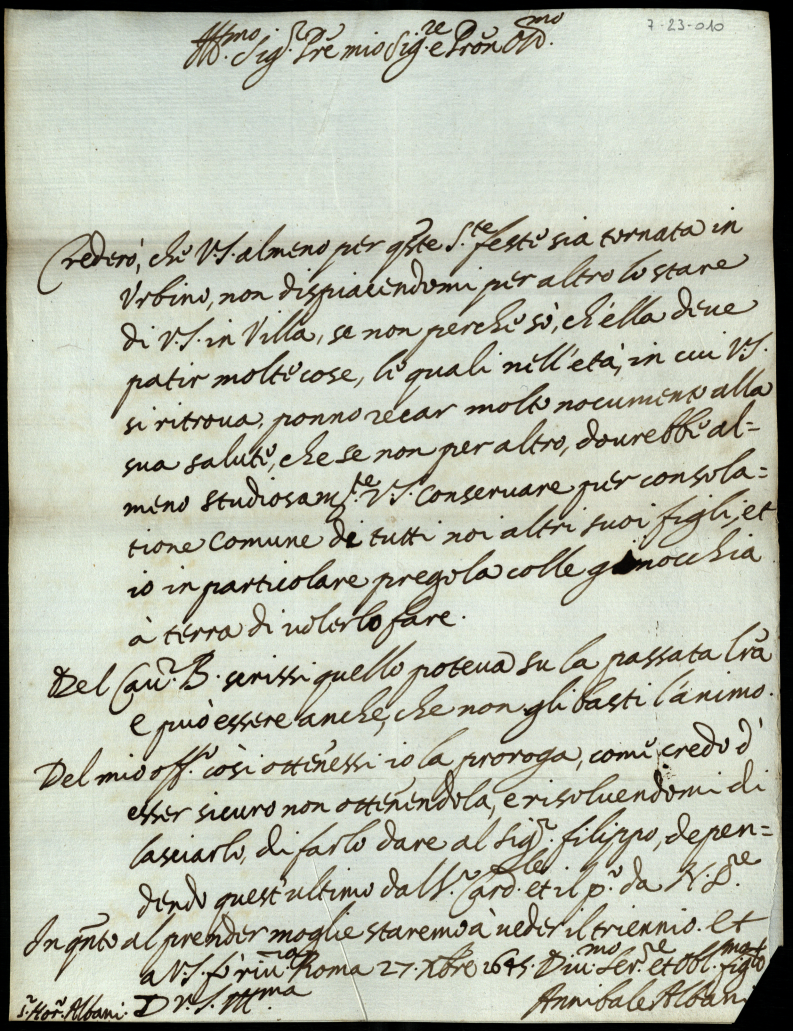 7-23-010
Ill.mo Sig.r Prẽ mio Sig.re e Prõn Oss.mo
Crederò, che V.S. almeno per qste S.te feste sia tornata in
Vrbino, non dispiacendomi per altro lo stare
di V.S. in Villa, se non perche sò, ch'ella deue
patir molte cose, le quali nell'età, in cui V.S.
si ritroua, ponno recar molto nocumento alla
sua salute, che se non per altro, dourebbe al=
meno studiosam.te V.S. conseruare per consola=
tione comune di tutti noi altri suoi figli, et
io in particolare pregola colle ginocchia
à terra di uolerlo fare.
Del Cau.r B. scrissi quello poteua su la passata lrã
e può essere anche, che non gli basti l'animo.
Del mio off.o così ottenessi io la proroga, come credo d'
esser sicuro non ottenendola, e risoluendomi di
lasciarlo, di farlo dare al Sig.r Filippo, depen=
dendo quest'ultimo dall S.r Card.le et il p.o da N. S.re
In qnto al prender moglie staremo à ueder il triennio. et
a V.S. fò riu.za Roma 27. Xbre 1645.
Diu.mo Ser.re et Obl.mo figlio
D V.S. Ill.ma
Annibale Albani
S.r Hor.o Albani.